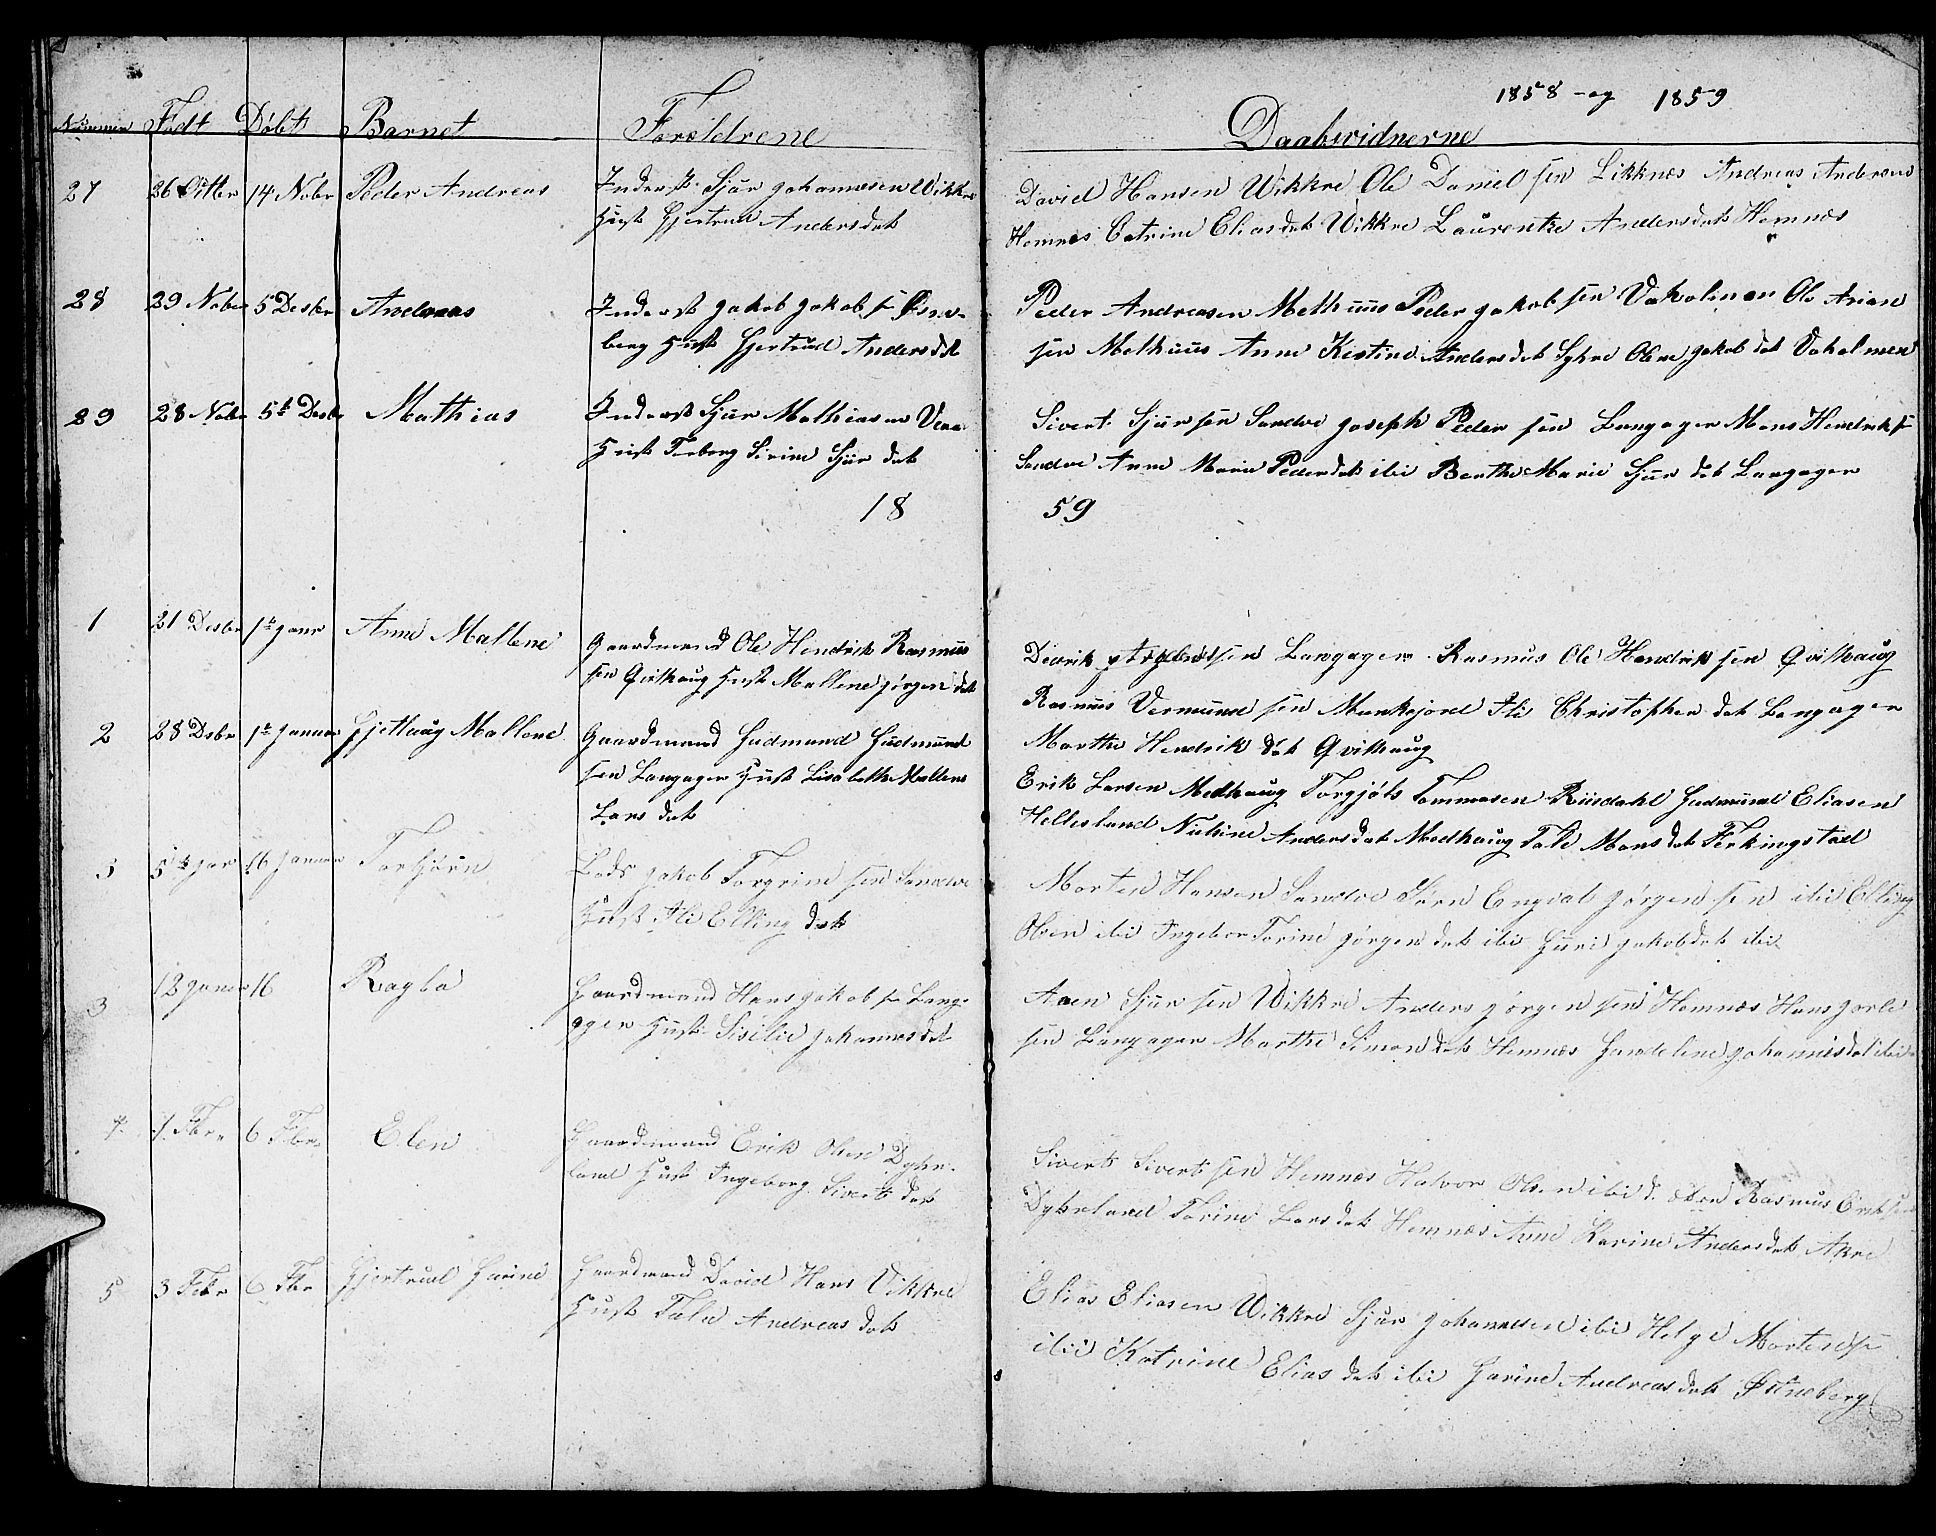 1858 - og 1859
Nummer Födt Döbt Barnet Foreldrene Daabsvidnerne
27 26 Octbr 14 Nobr Peder Andreas Inderst Sjur Johannesen Wikkre
Hust Gjertrud Andersdat
David Hansen Wikkre Ole Daniel sen Likknæs Andreas Andersen
Hemnes Catrine Eliasdat Wikkre Laurentze Andersdat Hemnæs
28 29 Nober 5 Desbr Andreas Inderst Jakob Jakob sen
berg Hust Gjertrud Andersdt
Peder Andreasen Melhuus Peder Jakob sen Vakolmen Ole Arian
sen Melhuus Anne Kistine Andersdat Syhre Olene Jakob dat Vaholmen
29 28 Nobr 5t Desbr Mathias Inderst Sjur Mathiasen
Hust Serine Sjur dat
Sivert Sjursen Sandve Joseph Peder sen Langager Mons Hendriks
Sandve Anne Marie Pedersdat ibi Berthe Marie Sjur dat Langager
18 59
1 21 Desbr 1t Janr Anne Mallene Gaardmand Ole Hendrik Rasmus
sen Qvilhaug Hust Mallene Jörgen dat
sen Langager Rasmus Ole Hendrik sen Qvilhaug
Rasmus Vermund sen Munkejord Ili Christopher dat Langager
Marthe Hendrik dat Qvilhaug
2 28 Desbr 1t Januar Gjetlaug Mallene Gaardmand Gudmund Gudmund
sen Langager Hust Lisabethe Mallene
Lars dat
Erik Larsen Medhaug Torgjöls Tommesen Risdahl Gudmund Eliasen
Hellesland Nichine Andersdat Medhaug Tale Monsdat Ferkingstad
5 5t Jar 16 Januar Torbjörn Lods Jakob Torgrim sen Sandve
Hust Ili Elling dat
Morten Hansen Sandve Sörn Engval Jörgen sen ibi Elling
Olsen ibi Ingebor Torine Jörgen dat ibi Guri Jakobdat ibi
3 12 Januar 16 Ragla Gaardmand Hans Jakob sen Lang-
ager Hust Siselie Johannesdat
Aaen Sjur sen Wikkre Anders Jörgen sen Hemnæs Hans
sen Langager Marthe Simon dat Hemnæs Gundeline Johannisdat ibi
4 1 Fbr 6 Fbr Elen Gaardmand Erik Olsen Dyhr-
land Hust Ingeborg Siverts dat
Siverts Siverts sen Hemnæs Halvor Olsen ibid Rasmus Erik sen
Dyhrland Torine Larsdat Hemnæs Anne Karine Andersdat Akre
5 3 Febr 6 Fbr Gjertrud Garine Gaardmand David Hans Vikkre
Hust Tale Andreas dat
Elias Eliasen Wikkre Sjur Johannesen ibi Helge Mortensen
ibi Katrine Elias dat ibi Garine Andreas dat